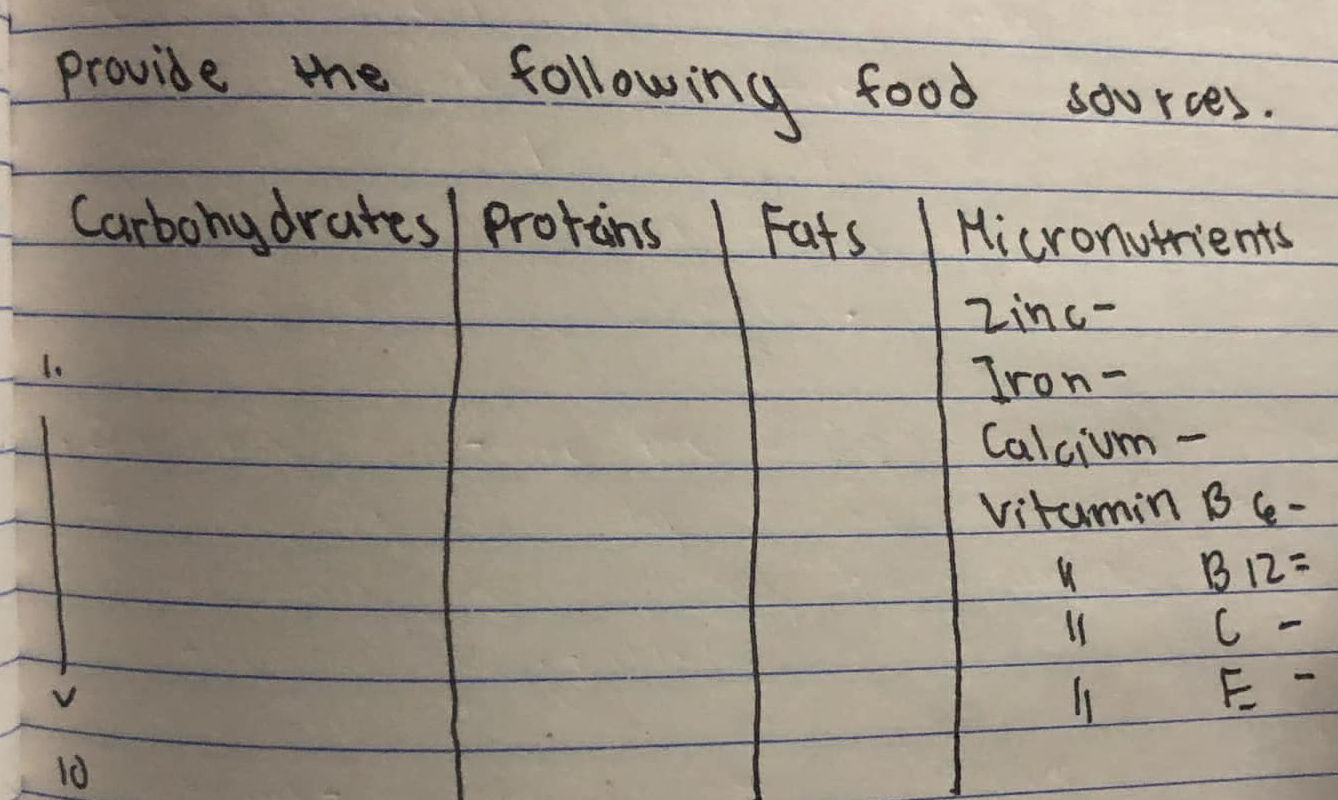 provide the following food sources.
Carbohydrates Proteins Fats Micronutrients
Zinc-
1. Iron-
Calcium -
Vitamin B 6-
" B 12=
" C -
" E -
10